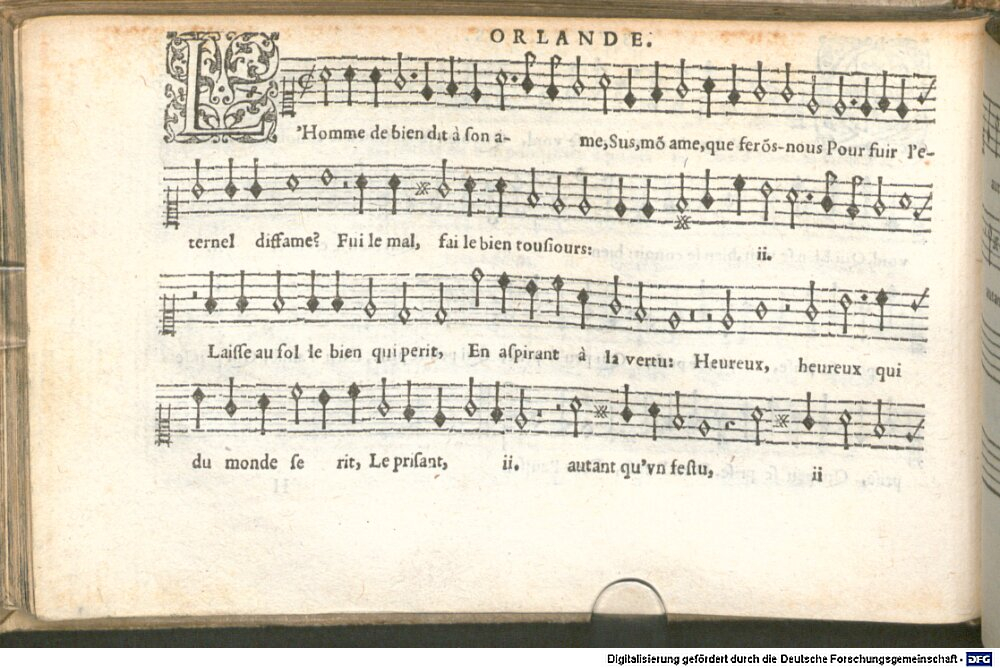 ORLANDE.
L'Homme de bien dit à son a- me, Sus, mõ ame, que ferõs-nous Pour fuir l'e-
ternel diffame? Fui le mal, fai le bien tousiours: ii.
Laisse au sol le bien qui perit, En aspirant à la vertu: Heureux, heureux qui
du monde se rit, Le prisant, ii. autant qu'vn festu, ii
Digitalisierung gefördert durch die Deutsche Forschungsgemeinschaft - DFG